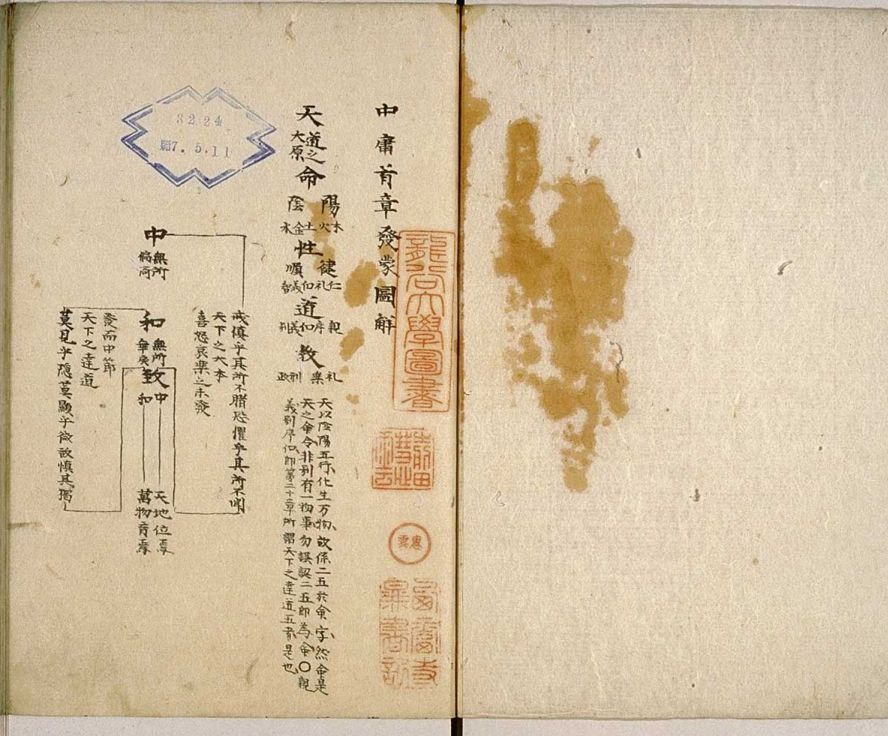 中庸首章發蒙圖解
天
道之
大原
命
陽
陰
木火土金水
性
健
順
仁礼
道
親
教
礼樂刑政
天以陰陽五行化生万物故係二五於命字然命是
天之命令非別有一物事勿誤認二五即為命〇親
義別序信即第二十章所謂天下之達道五者是也
戒慎乎其所不睹恐懼乎其所不聞
天下之大本
喜怒哀楽之未發
中
無所
偏倚
和
無所
乖戾
致
中
和
天地位焉
萬物育焉
發而中節
天下之達道
莫見乎隠莫顯乎微故慎其獨
龍谷大學圖書
3224
昭7.5.11